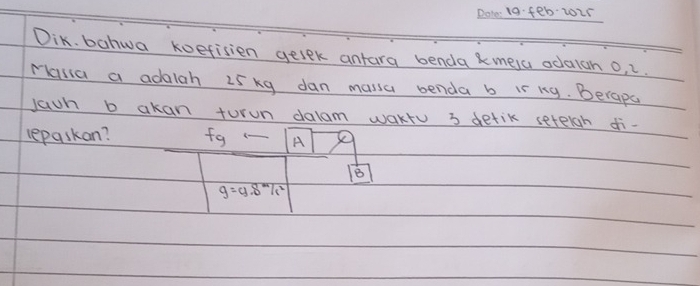 Date: 19.feb.2025
Dik. bahwa koefisien gesek antara benda & meja adalah 0,2.
Massa a adalah 25 kg dan massa benda b 15 kg. Berapa
jauh b akan turun dalam waktu 3 detik setelah di-
lepaskan?
fg ← A
B
g=9.8 m/s²